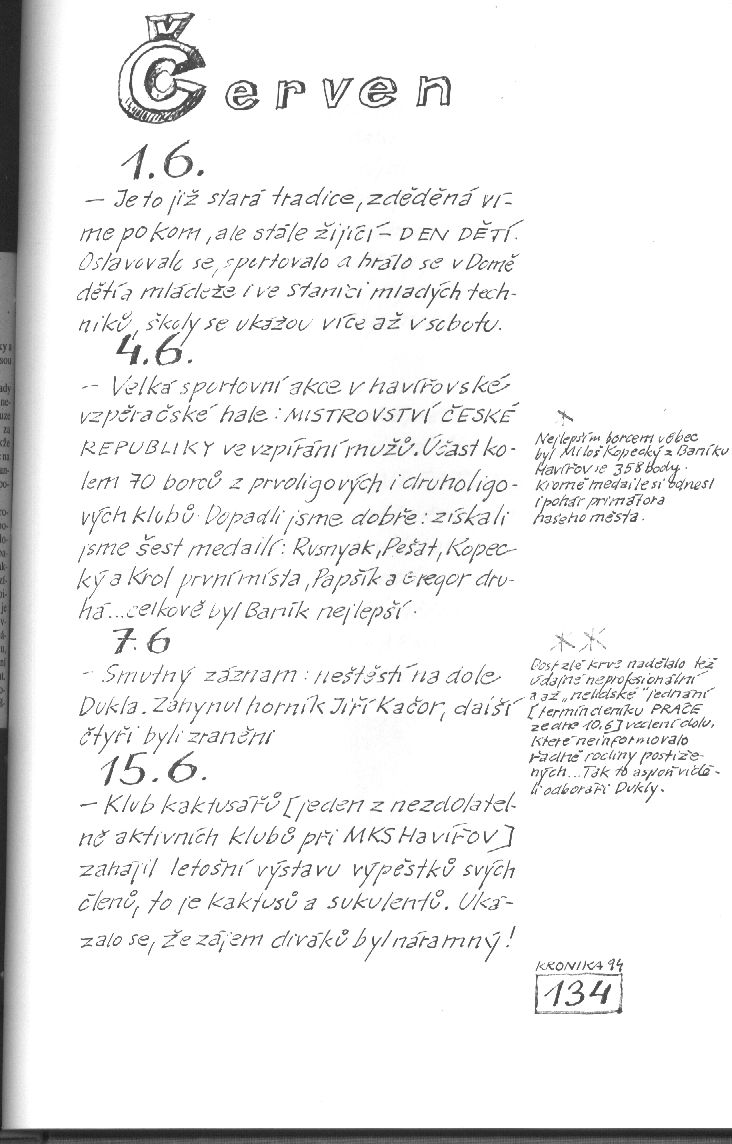 Červen
1.6.
— Je to již stará tradice, zděděná ví-
me po kom, ale stále žijící – DEN DĚTÍ.
Oslavovalo se, sportovalo a hrálo se v Domě
dětí a mládeže i ve Stanici mladých tech-
niků, školy se ukážou více až v sobotu.
4.6.
-- Velká sportovní akce v havířovské
vzpěračské hale: MISTROVSTVÍ ČESKÉ
REPUBLIKY ve vzpírání mužů. Účast ko-
lem 70 borců z prvoligových i druholigo-
vých klubů. Dopadli jsme dobře: získali
jsme šest medailí: Rusnyak, Pešat, Kopec-
ký a Krol první místa, Papšík a Gregor dru-
há...celkově byl Baník nejlepší.
7.6
- Smutný záznam: neštěstí na dole
Dukla. Zahynul horník Jiří Kačor, další
čtyři byli zraněni
15.6.
— Klub kaktusářů [jeden z nezdolatel-
ně aktivních klubů při MKS Havířov]
zahájil letošní výstavu výpěstků svých
členů, to je kaktusů a sukulentů. Uká-
zalo se, že zájem diváků byl náramný!
Nejlepším borcem vůbec
byl Miloš Kopecký z Baníku
Havířov se 358 body.
Kromě medaile si odnesl
i pohár primátora
našeho města.
Dost zlé krve nadělalo též
údajné neprofesionální
a až „nelidské" jednání
[termín deníku PRÁCE
ze dne 10.6] vedení dolu,
které neinformovalo
řádně rodiny postiže-
ných... Tak to aspoň vidě-
li odboráři Dukly.
KRONIKA 94
134